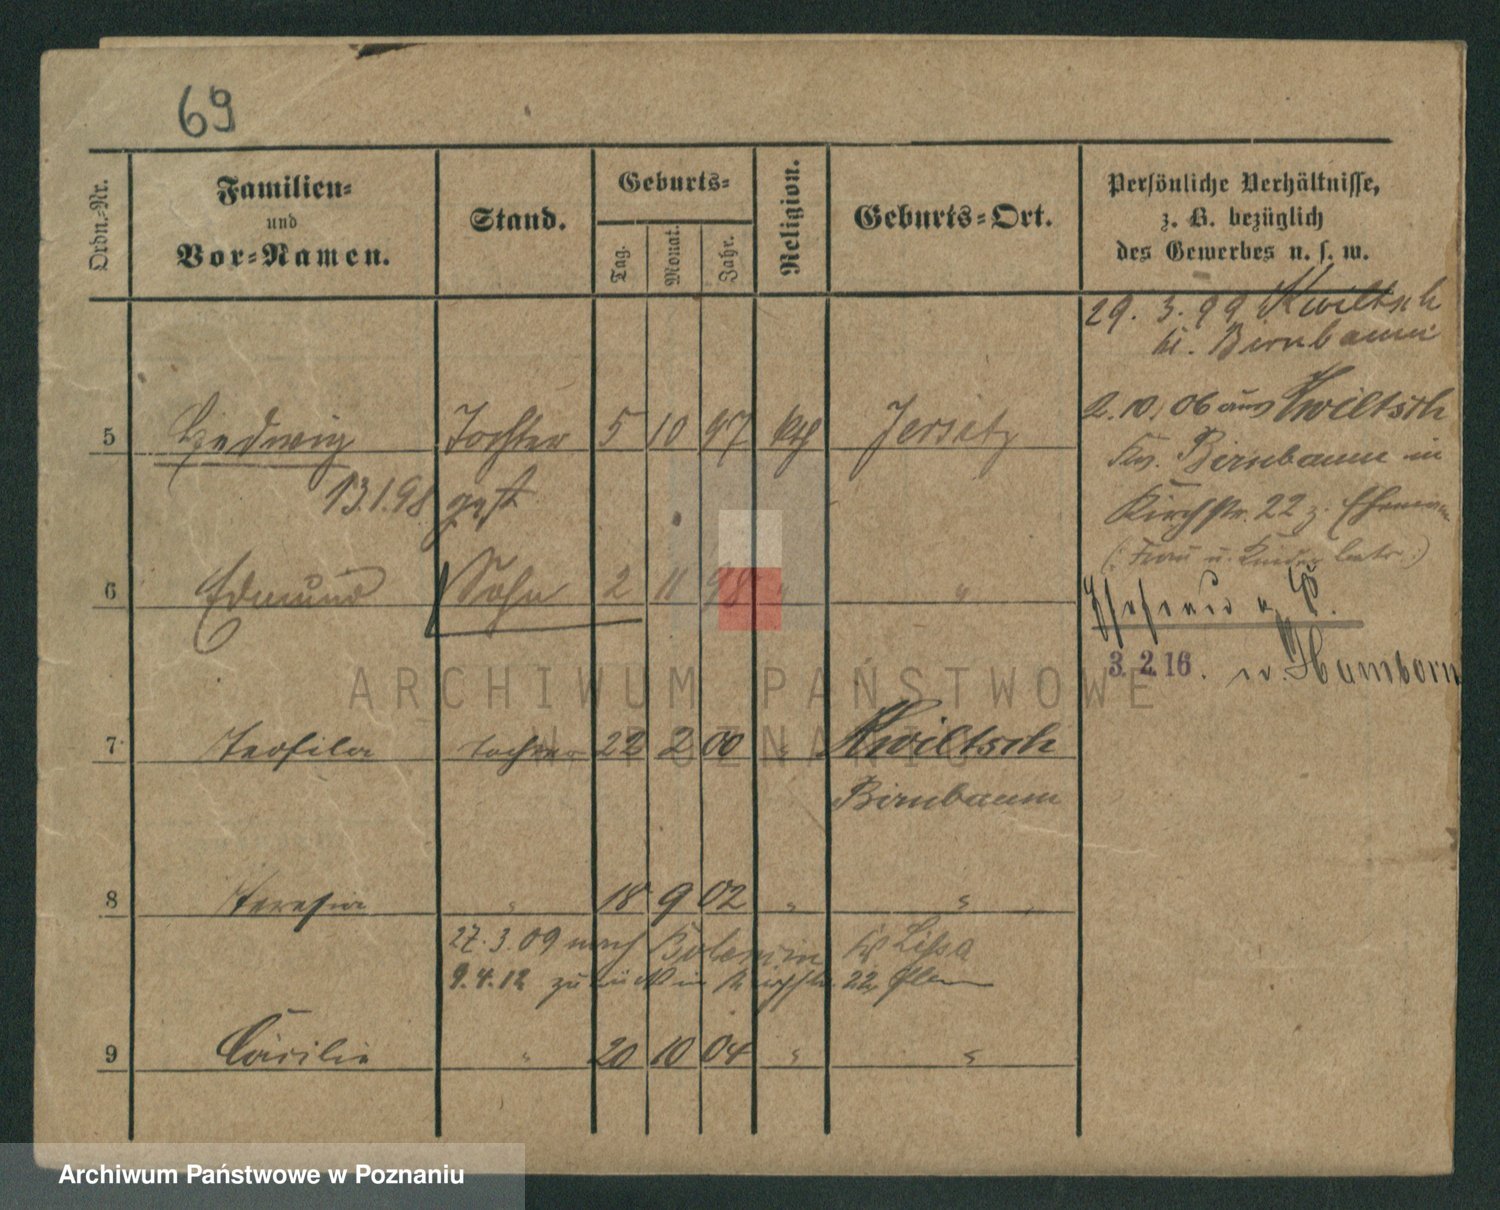 69
Ordn.-Nr. Familien- und Vor-Namen. Stand. Geburts- Tag. Monat. Jahr. Religion. Geburts-Ort. Persönliche Verhältnisse, z. B. bezüglich des Gewerbes u. s. w.
29. 3. 99 Kwiltsch
Birnbaum
5 Hedwig Tochter 5 10 97 kth Jersitz
13.1.98 gest
2. 10. 06 aus Kwiltsch
Birnbaum in
Kirchstr. 22 z. Ehemann
(: Frau u. Kinder :)
6 Edmund Sohn 2 11 98 " "
3. 2. 16. Hamborn
7 Teofila Tochter 22 2 00 " Kwiltsch
Birnbaum
8 Teresia " 18 9 02 " "
27. 3. 09 nach Lissa
9. 4. 12 zurück in Kirchstr. 22
9 Cäcilie " 20 10 04 " "
ARCHIWUM PAŃSTWOWE
W POZNANIU
Archiwum Państwowe w Poznaniu